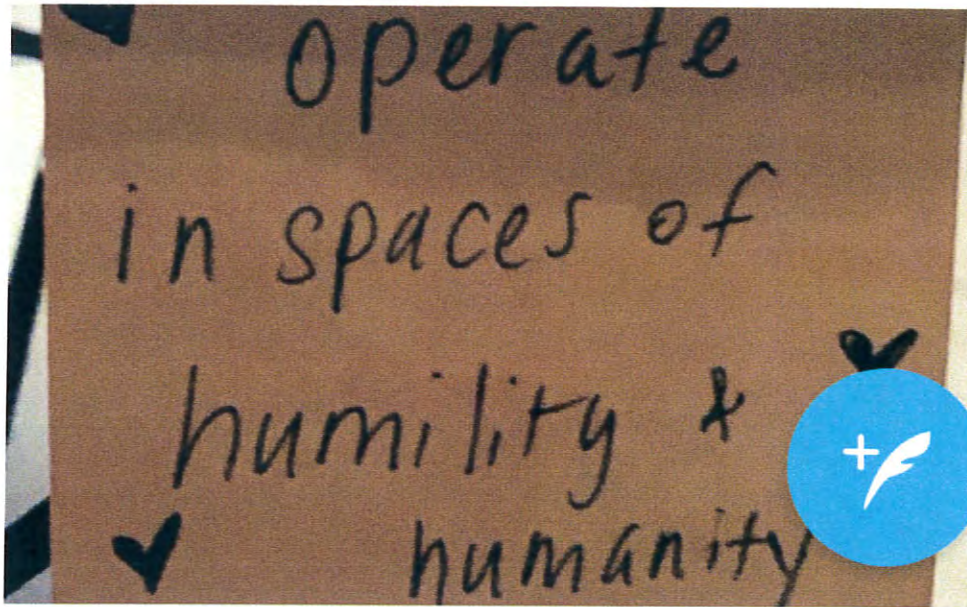 operate
in spaces of
humility &
humanity